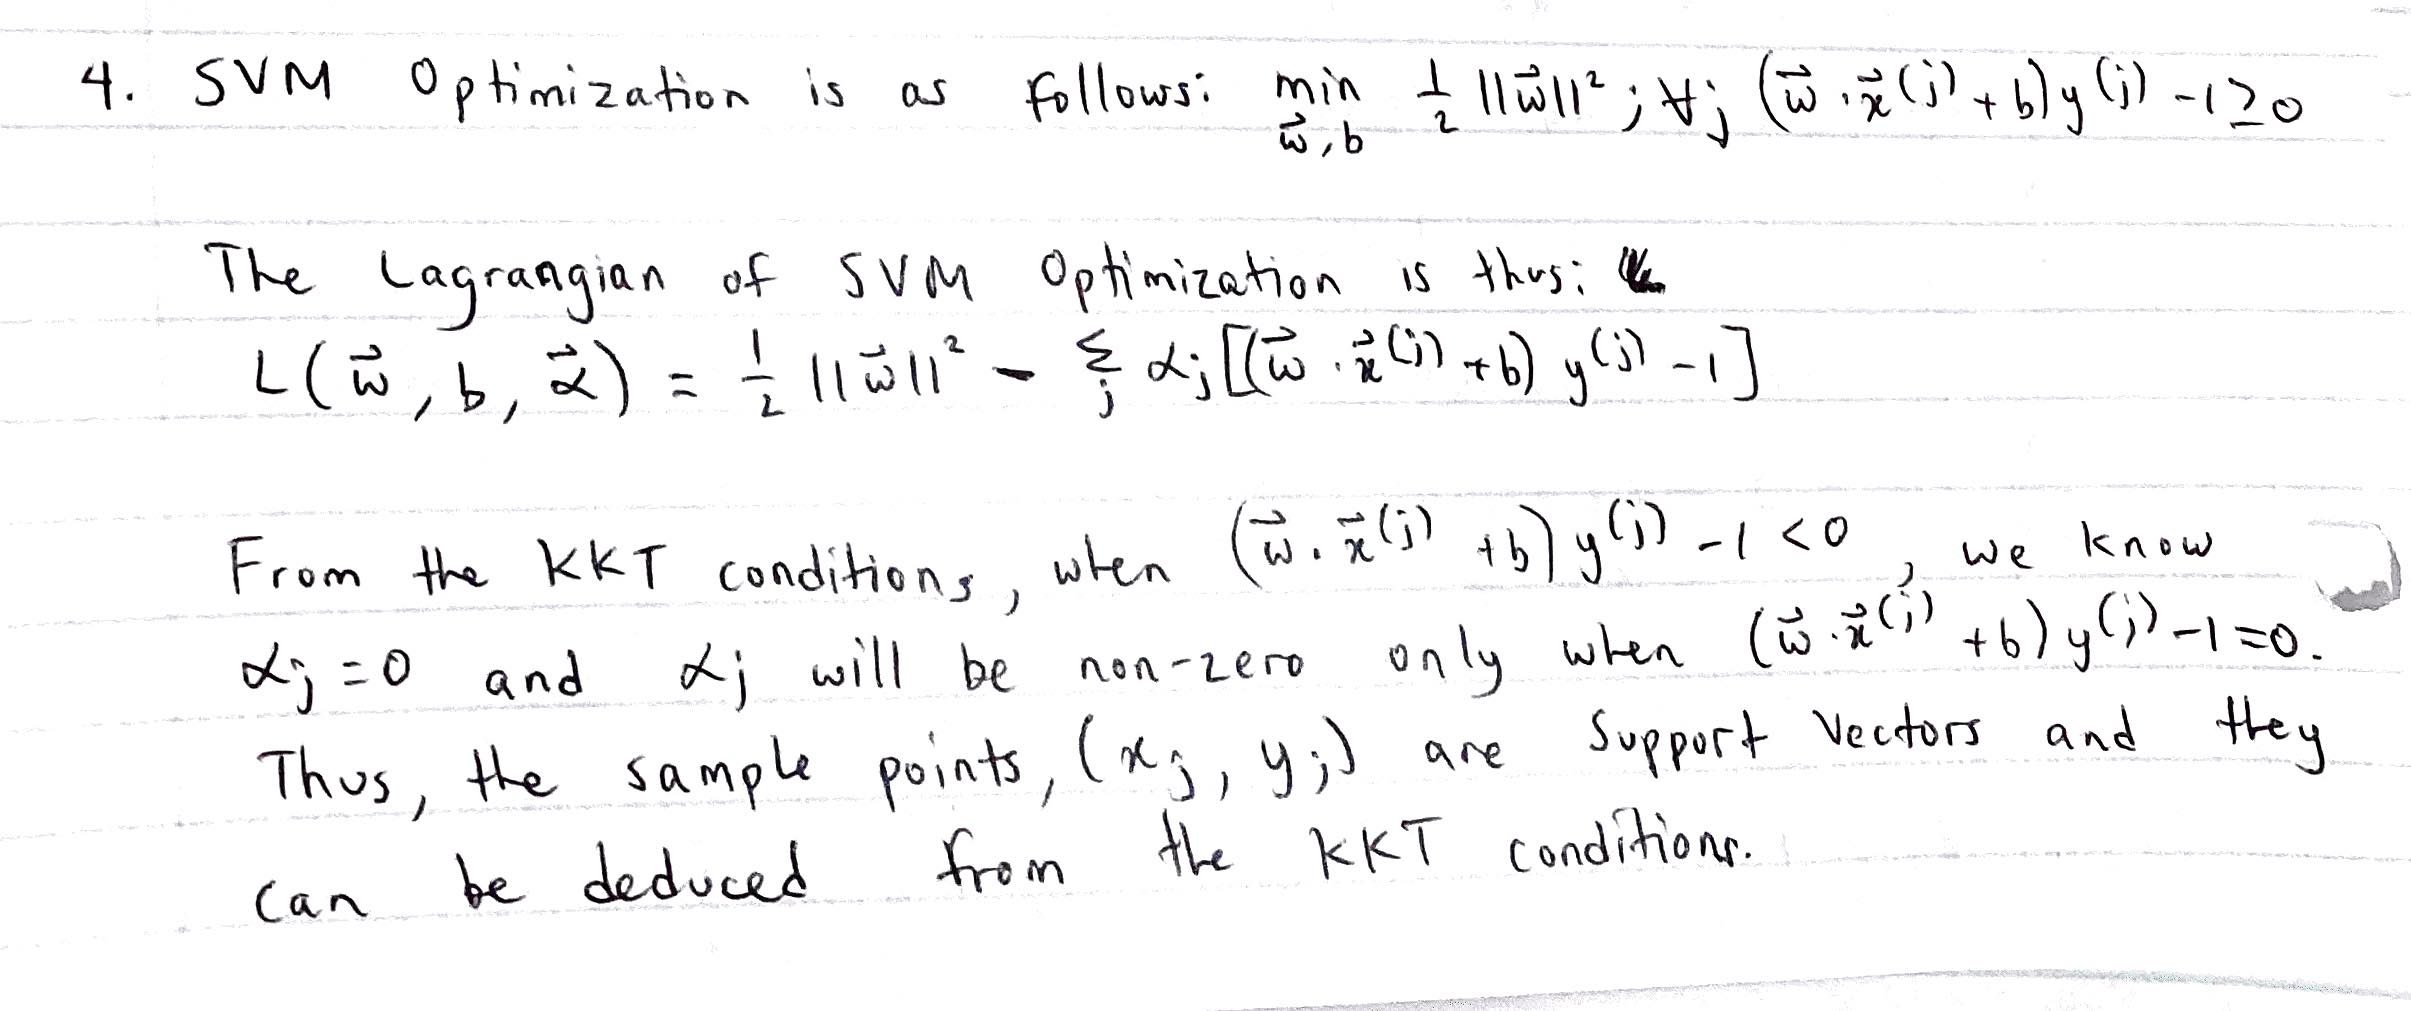 4. SVM Optimization is as follows: min 1/2 ||w⃗||² ; ∀j (w⃗ · x⃗^(j) + b) y^(j) - 1 ≥ 0
w⃗, b
The Lagrangian of SVM Optimization is thus:
L(w⃗, b, α⃗) = 1/2 ||w⃗||² - Σ_j αj [(w⃗ · x⃗^(j) + b) y^(j) - 1]
From the KKT conditions, when (w⃗ · x⃗^(j) + b) y^(j) - 1 < 0, we know
αj = 0 and αj will be non-zero only when (w⃗ · x⃗^(j) + b) y^(j) - 1 = 0.
Thus, the sample points, (xj, yj) are Support Vectors and they
can be deduced from the KKT conditions.